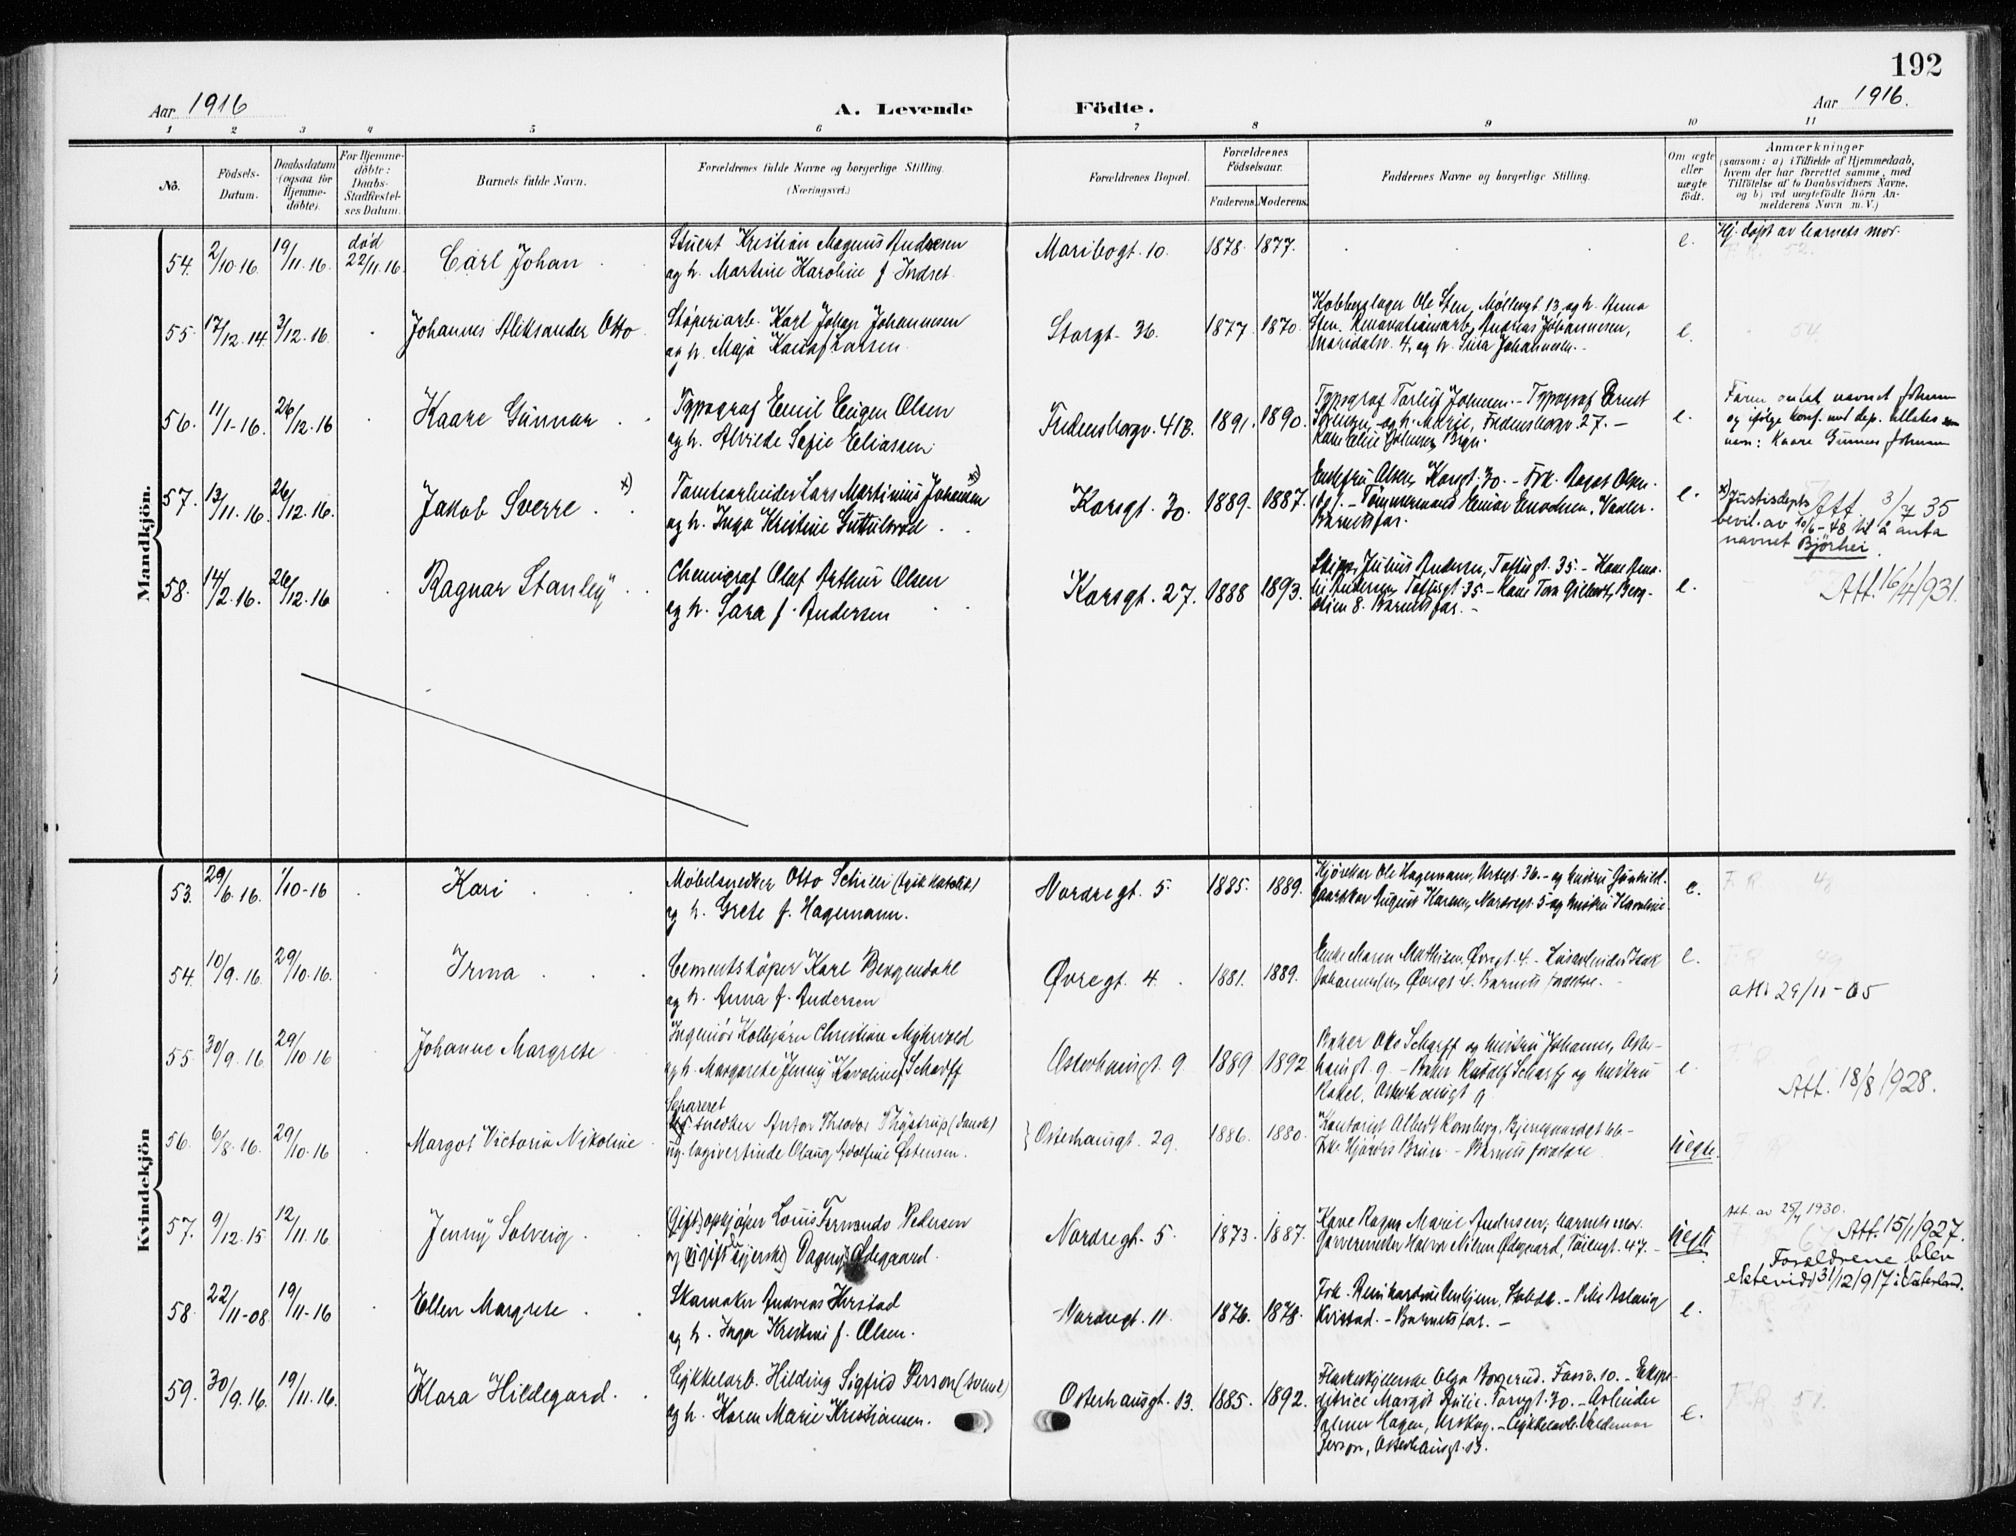 192
Aar 1916
A. Levende Fødte.
Aar 1916.
1 2 3 4 5 6 7 8 9 10 11
No.
Fødsels-
Datum.
Daabsdatum
(ogsaa for
Hjemme-
døbte).
For Hjemme-
døbte:
Daabs-
Stadfæstel-
ses Datum.
Barnets fulde Navn.
Forældrenes fulde Navne og borgerlige Stilling.
(Næringsvei.)
Forældrenes Bopæl.
Forældrenes
Fødselsaar.
Faderens. Moderens.
Faddernes Navne og borgerlige Stilling.
Om ægte
eller
uægte
født.
Anmærkninger
(saasom: a) i Tilfælde af Hjemmedaab,
hvem der har forrettet samme, med
Tilføielse af to Daabsvidners Navne,
og b) ved uægtefødte Børn An-
melderens Navn m. V.)
Mandkjön.
54. 2/10.16. 19/11.16. død 22/11.16. Carl Johan
Stuert Kristian Magnus Andresen
og h. Martine Karoline f. Indset.
Maribogt. 10. 1878. 1877. e.
Hj. døpt av barnets mor.
55. 17/12.14. 3/12.16. Johannes Aleksander Otto
Støperiarb. Karl Johan Johannesen
og h. Maja
Storgt. 36. 1877. 1870.
Kobberslager Ole Sten, Møllergt. 13 og h. Anna
Sten. Renovationsarb. Andreas Johannesen,
Maridalsv. 4, og h. Lina Johannesen.
e.
56. 11/1-16. 26/12.16 Kaare Gunnar
Typograf Emil Eugen Olsen
og h. Alvilde Sofie Eliassen.
Fredensborgv. 41B. 1891. 1890.
Typograf Torleif Johnsen. - Typograf Ernst
og h. Marie, Fredensborgv. 27. -
e.
navnet Johnsen
og ifølge konf. med dep. tillates
navn: Kaare Gunnar Johnsen
57. 13/11.16. 26/12.16. Jakob Sverre x)
Tomtearbeider Lars Martinius Johansen x)
og h. Inga Kristine Guttulsrød
Korsgt. 30. 1889. 1887.
Enkefru Olsen, Korsgt. 30. - Frk. Dagot Olsen.
ibd. - Tømmermand Einar Enodsen, Vadler.
Barnets far.
e.
x) Justisdepts Att. 3/7 35
bevil. av 10/6-48 til å anta
navnet Bjørhei.
58. 14/2.16. 26/12.16 Ragnar Stanley
Chemigraf Olaf Arthur Olsen
og h. Sara f. Andersen
Korsgt. 27. 1888 1893.
Skipp. Julius Andersen, Toftesgt. 35. - Kone Ama-
lie Andersen, Toftesgt 35. - Kone Tora Gilbert, Berg-
stien 8. Barnets far. -
e.
Att. 16/4 1931.
Kvindekjön
53. 29/6.16. 1/10-16 Kari
Møbelsnedker Otto Schilli (tysk katolik)
og h. Grete f. Hagemann.
Nordregt. 5 1885. 1889.
Kjørekar Ole Hagemann, Urtegt. 36. - og hustru Gunhild.
Gaardskar August Hansen, Nordregt. 5 og hustru Karoline.
e.
54. 10/9.16. 29/10.16. Irma
Cementstøper Karl Bergendahl
og h. Anna f. Andersen
Øvregt. 4. 1881. 1889.
Enke Maren Mathisen, Øvregt. 4. - Løsarbeider Isak
Johannessen, Øvregt. 4. Barnets foreldre. -
e.
att. 29/11-65
55. 30/9.16 29/10 16 Johanne Margrete
Ingeniør Kolbjørn Christian Myhrvold
og h. Margarete Jenny Karoline f. Scharff
Osterhausgt. 9 1889 1892
Baker Otto Scharff og hustru Johanne, Oster-
hausgt 9 - Baker Rudolf Scharff og hustru
Rakel, Osterhausgt 9
e.
Att. 18/8 1928.
56. 6/8.16. 29/10.16 Margot Victoria Nikoline
Separeret
snedker Anton Theodor Thystrup (dansk)
ug. logivertinde Olaug Adolfine Østensen.
Osterhausgt. 29 1886. 1880.
Kontorist Albert Romberg, Bjerregaardsgt.
Frk. Hjørdis Bruun. - Barnets foreldre.
uegte.
57. 9/12.15 12/11.16 Jenny Solveig
(Gift) opkjøper Louis Fernando Pedersen
og (gift syerske) Dagny Ødegaard.
Nordregt. 5. 1873. 1887.
Kone Ragna Marie Andersen, barnets mor.
Garvermester Halvor Nilsen Ødegaard, Tøiengt. 47. -
uegte
Att. av 25/4 1930.
Att. 15/1 1927.
Foreldrene blev
ektevidd 31/12 1917 i Vaterland.
58. 22/11-08. 19/11-16 Ellen Margrete
Skomaker Andreas Kirstad
og h. Inga Kristine f. Olsen.
Nordregt. 11. 1876. 1878.
Kirstad. - Barnets far. -
e.
59. 30/9.16. 19/11.16. Klara Hildegard
Cykkelarb. Hilding Sigfrid Person (svensk)
og h. Karen Marie Kristiansen.
Osterhausgt. 13. 1885. 1892.
Flaskeskyllerske Olga Borgerud. Fossv. 10. - Ekspe-
ditrice Margot Julie. Torvgt. 30. - Arbeider
Palmer Hagen, Urskog. - Cykkelarb. Valdemar
Person, Osterhausgt. 13.
e.